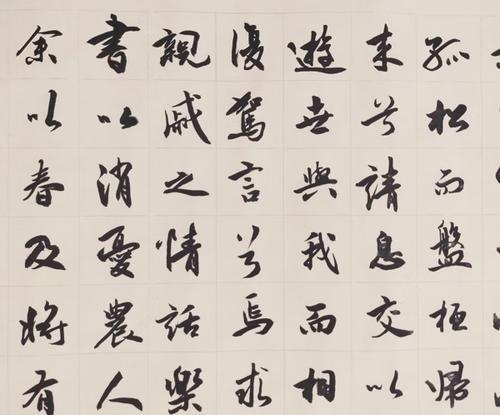 孤松而盤桓歸
来兮請息交以
遊世與我而相
復駕言兮焉求
親戚之情話樂
書以消憂農人
余以春及將有